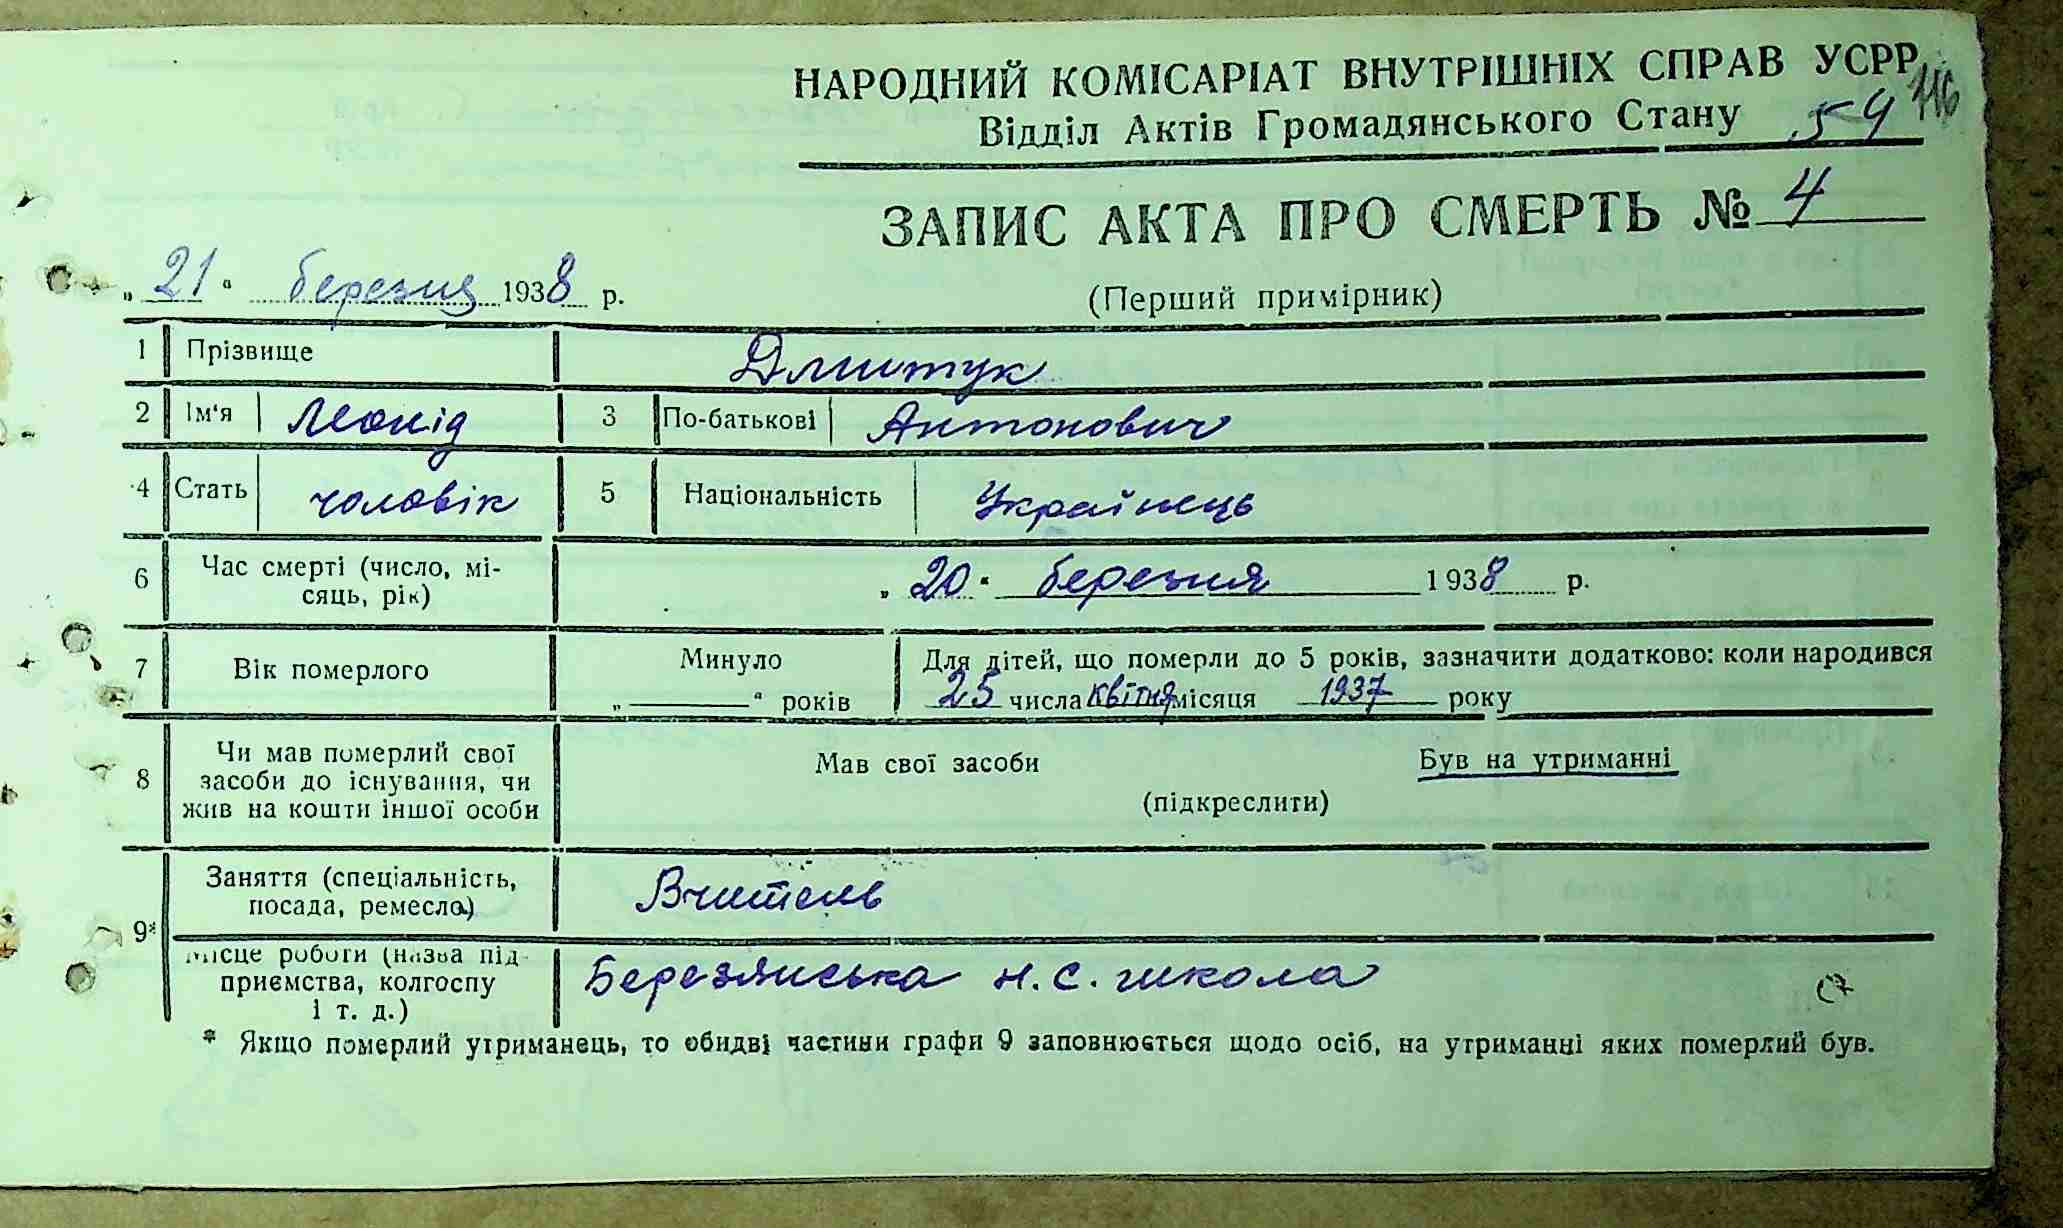 НАРОДНИЙ КОМІСАРІАТ ВНУТРІШНІХ СПРАВ УСРР
116
Відділ Актів Громадянського Стану 59
ЗАПИС АКТА ПРО СМЕРТЬ № 4
„ 21 “ березня 1938 р.
(Перший примірник)
1 Прізвище Дмитук
2 Ім'я Леонід 3 По-батькові Антонович
4 Стать чоловік 5 Національність Українець
6 Час смерті (число, мі-
сяць, рік)
„ 20 “ березня 1938 р.
7 Вік померлого
Минуло
„ “ років
Для дітей, що померли до 5 років, зазначити додатково: коли народився
25 числа квітня місяця 1937 року
8 Чи мав померлий свої
засоби до існування, чи
жив на кошти іншої особи
Мав свої засоби Був на утриманні
(підкреслити)
9* Заняття (спеціальність,
посада, ремесло)
Вчитель
Місце роботи (назва під-
приємства, колгоспу
і т. д.)
Березянська н. с. школа
* Якщо померлий утриманець, то обидві частини графи 9 заповнюється щодо осіб, на утриманні яких померлий був.